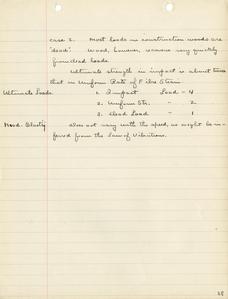 case 2. Most loads in construction woods are
"dead". Wood, however, recovers very quickly
from dead loads.
Ultimate strength in impact is about twice
that in Uniform Rate of Fibre Strain
Ultimate Loads 1. Impact Load - 4
2. Uniform Str. " 2
3. Dead Load " 1
Mod. Elastic does not vary with the speed, as might be in-
ferred from the Law of Vibrations.